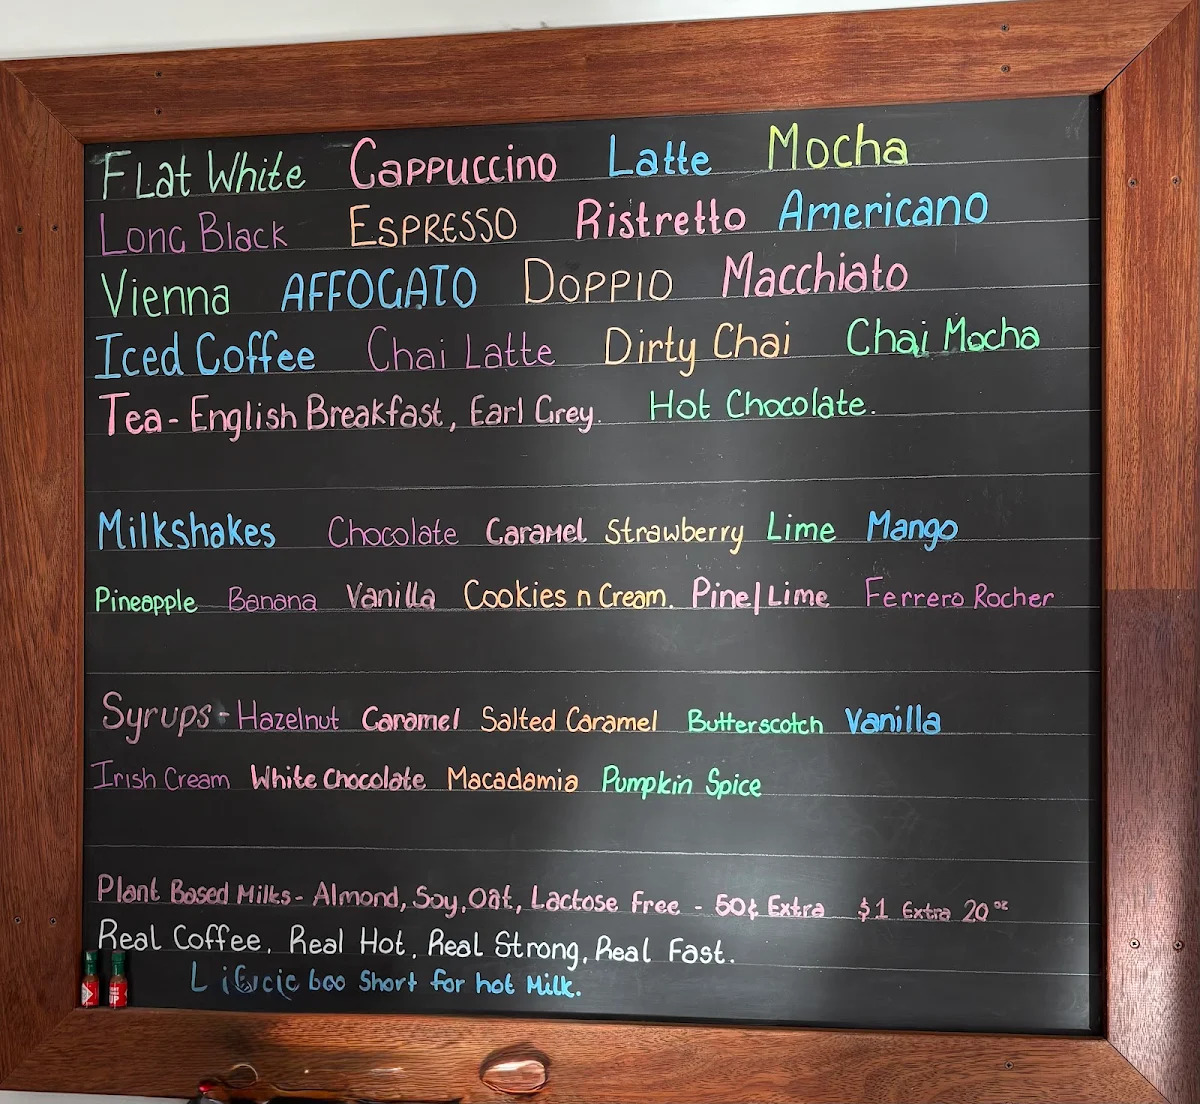 Flat White Cappuccino Latte Mocha
Long Black Espresso Ristretto Americano
Vienna AFFOGATO Doppio Macchiato
Iced Coffee Chai Latte Dirty Chai Chai Mocha
Tea - English Breakfast, Earl Grey. Hot Chocolate.
Milkshakes Chocolate Caramel Strawberry Lime Mango
Pineapple Banana Vanilla Cookies n Cream. Pine/Lime Ferrero Rocher
Syrups - Hazelnut Caramel Salted Caramel Butterscotch Vanilla
Irish Cream White Chocolate Macadamia Pumpkin Spice
Plant Based Milks - Almond, Soy, Oat, Lactose Free - 50¢ Extra $1 Extra 20oz
Real Coffee. Real Hot. Real Strong, Real Fast.
short for hot Milk.